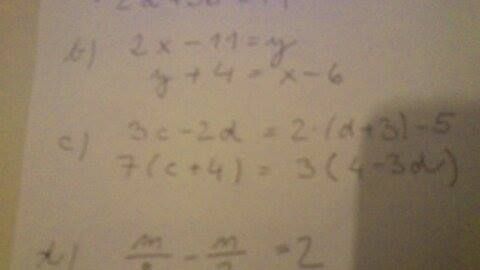 b) 2x - 11 = y
y + 4 = x - 6
c) 3c - 2d = 2·(d+3) - 5
7(c+4) = 3(4-3d)
d) m/ - n/ = 2